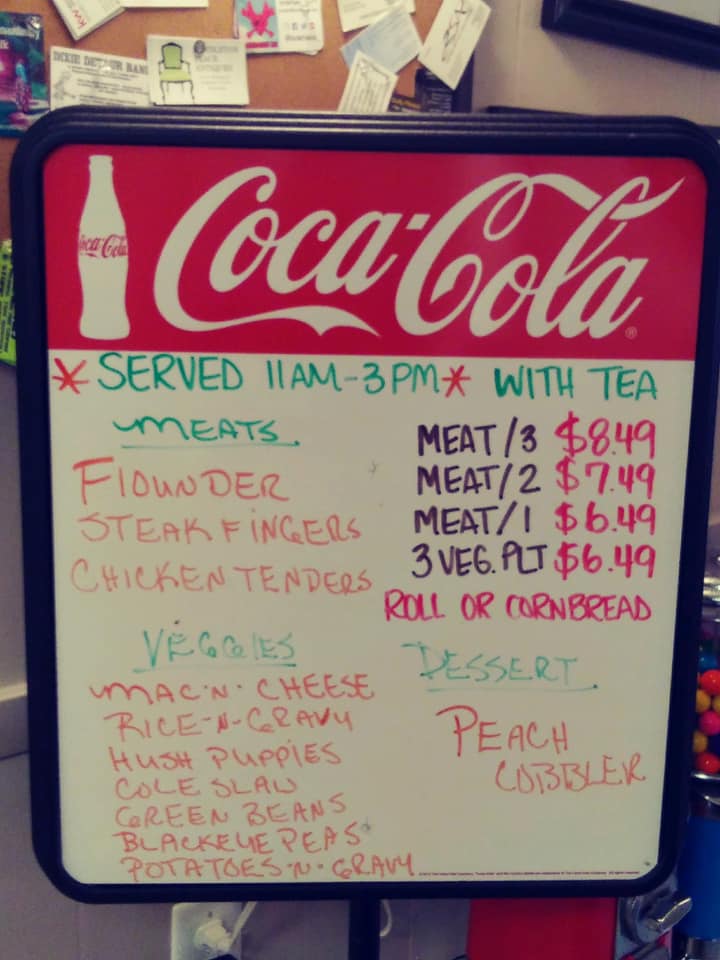 DIXIE DETOUR BAND
Coca-Cola
Coca-Cola
*SERVED 11AM-3PM* WITH TEA
MEATS
FlOUNDER
STEAK FINGERS
CHICKEN TENDERS
MEAT/3 $8.49
MEAT/2 $7.49
MEAT/1 $6.49
3 VEG. PLT $6.49
ROLL OR CORNBREAD
VEGGIES
MAC'N'CHEESE
RICE-N-GRAVY
HUSH PUPPIES
COLE SLAW
GREEN BEANS
BLACKEYE PEAS
POTATOES-N-GRAVY
DESSERT
PEACH
COBBLER